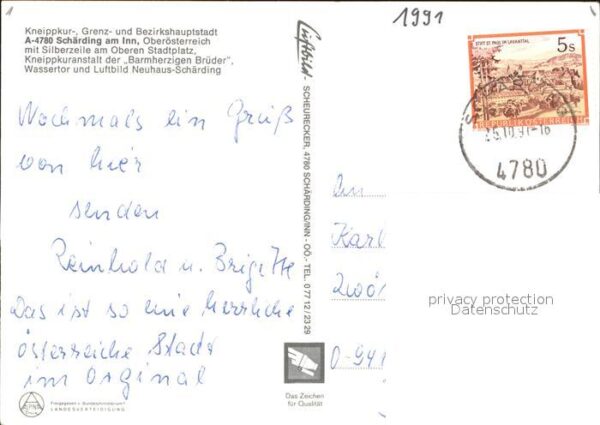 Kneippkur-, Grenz- und Bezirkshauptstadt
A-4780 Schärding am Inn, Oberösterreich
mit Silberzeile am Oberen Stadtplatz,
Kneippkuranstalt der „Barmherzigen Brüder”,
Wassertor und Luftbild Neuhaus-Schärding
Nochmals ein Gruß
von hier
senden
Reinhold u. Brigitte
Das ist so eine herrliche
österreiche Stadt
im Orginal
Freigegeben v. Bundesministerium f.
LANDESVERTEIDIGUNG
Luftbild - SCHEURECKER, 4780 SCHÄRDING/INN - OÖ - TEL. 0 77 12 / 23 29
Das Zeichen
für Qualität
1991
STIFT ST. PAUL IM LAVANTTAL
5 S
REPUBLIK ÖSTERREICH
25.10.91-18
4780
An
Karl
D-941
privacy protection
Datenschutz